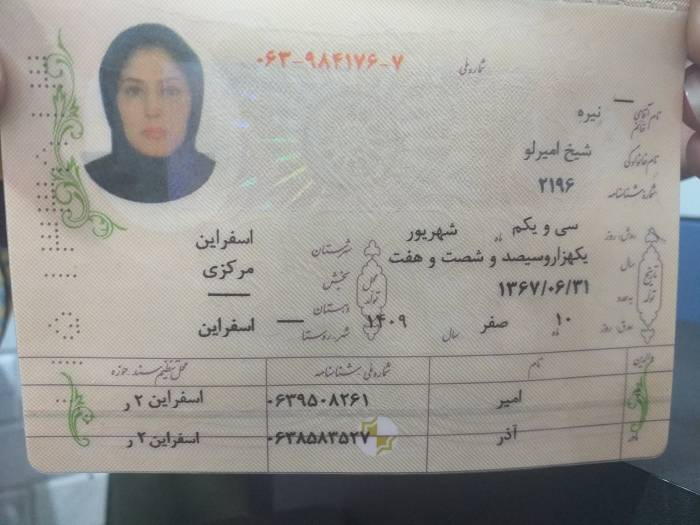 شماره ملی ۰۶۳-۹۸۴۱۷۶-۷
نام آقای / خانم نیره
نام خانوادگی شیخ امیرلو
شماره شناسنامه ۲۱۹۶
روز سی و یکم ماه شهریور
سال یکهزاروسیصد و شصت و هفت
۱۳۶۷/۰۶/۳۱
روز ۱۰ ماه صفر سال ۱۴۰۹
تاریخ تولد
محل تولد
شهرستان اسفراین
بخش مرکزی
دهستان
شهر-روستا اسفراین
والدین نام شماره ملی-شناسنامه محل تنظیم سند-حوزه
امیر ۰۶۳۹۵۰۸۲۶۱ اسفراین ۲ ر
آذر ۰۶۳۸۵۸۳۵۲۷ اسفراین ۲ ر